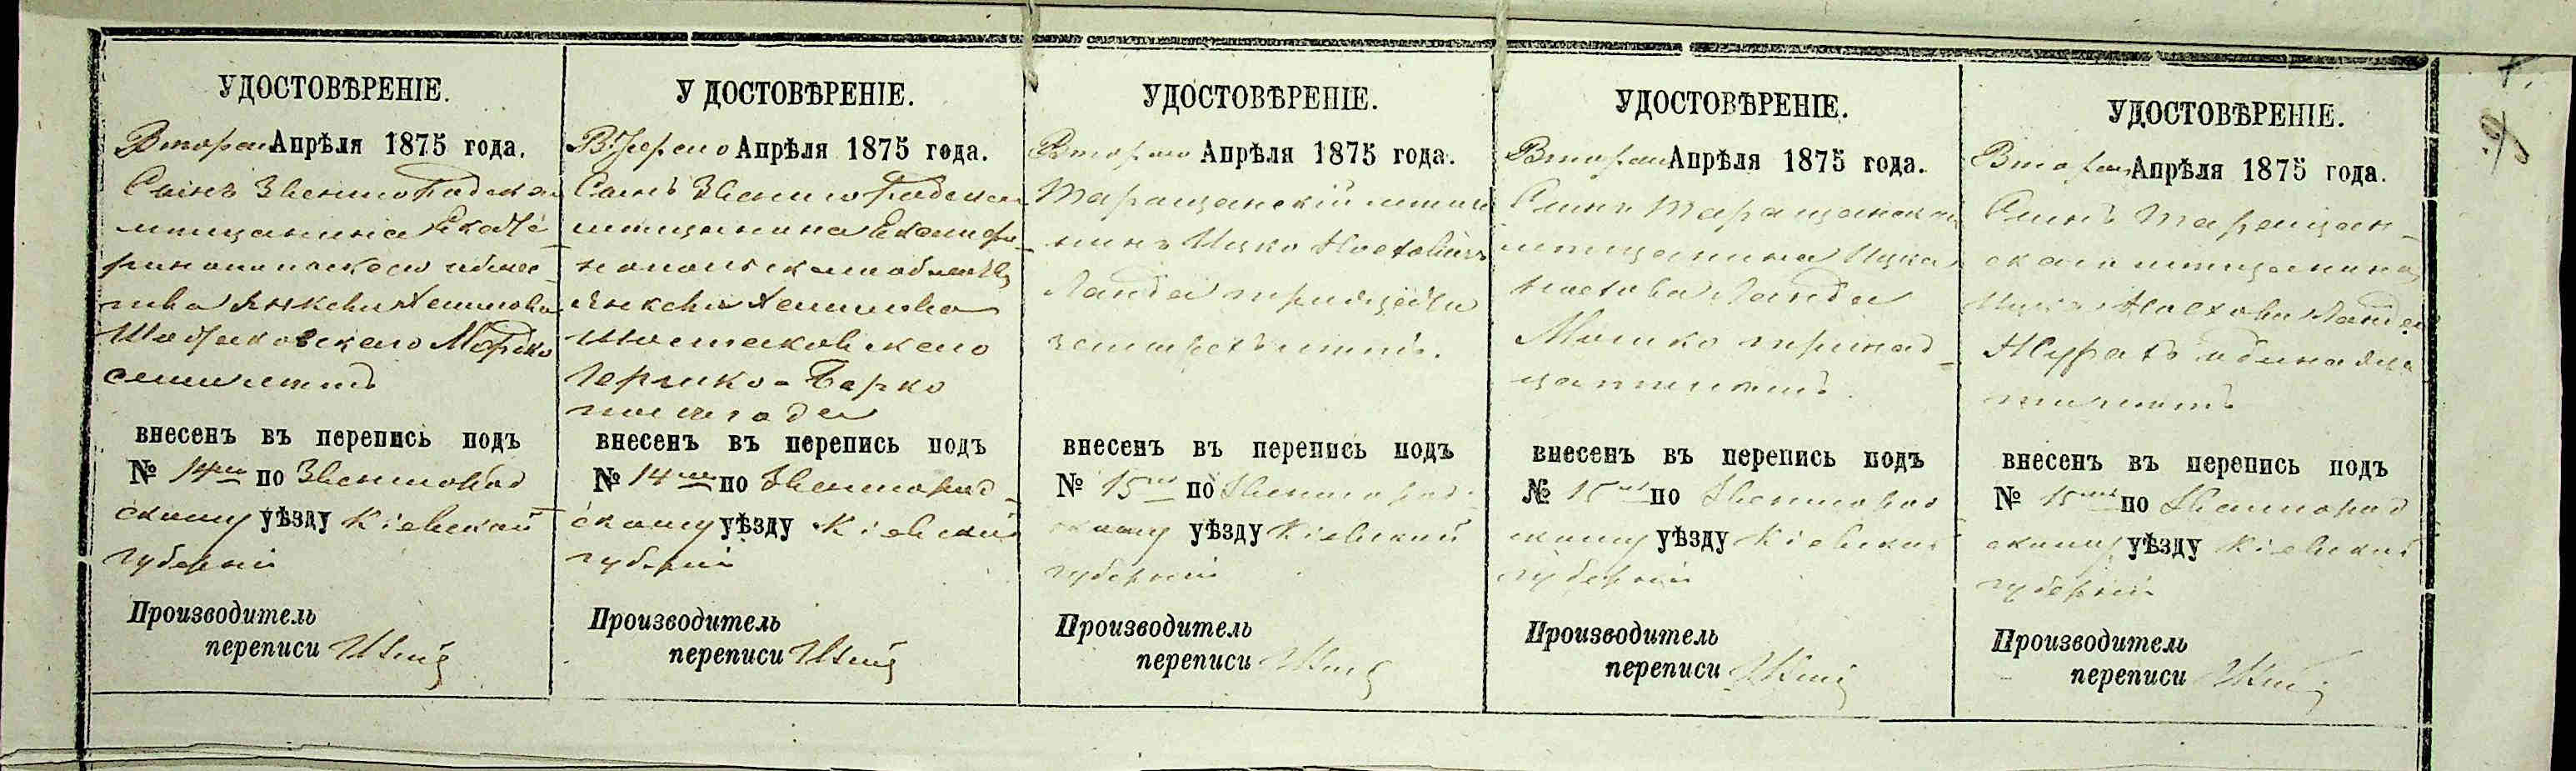 УДОСТОВѢРЕНІЕ.
Втораго Апрѣля 1875 года.
Сынъ Звенигородскаго
мѣщанина Екате-
ринопольскаго общес-
тва
Шостаковскаго Мордко
семи лѣтъ
внесенъ въ перепись подъ
№ 14 по Звенигород
скому уѣзду Кіевской
губерніи
Производитель
переписи
УДОСТОВѢРЕНІЕ.
Втораго Апрѣля 1875 года.
Сынъ Звенигородскаго
мѣщанина Екатери-
нопольскаго общества
Шостаковскаго
Гершко-Берко
внесенъ въ перепись подъ
№ 14 по Звенигород-
скому уѣзду Кіевской
губерніи
Производитель
переписи
УДОСТОВѢРЕНІЕ.
Втораго Апрѣля 1875 года.
Таращанскій мѣща
нинъ Ицко Ноеховичъ
Ланда тридцати
лѣтъ.
внесенъ въ перепись подъ
№ 15 по Звенигород-
скому уѣзду Кіевской
губерніи
Производитель
переписи
УДОСТОВѢРЕНІЕ.
Втораго Апрѣля 1875 года.
Сынъ Таращанскаго
мѣщанина Ицка
Ноехова Ланда
Мошко тринад-
цати лѣтъ
внесенъ въ перепись подъ
№ 15 по Звенигород
скому уѣзду Кіевской
губерніи
Производитель
переписи
УДОСТОВѢРЕНІЕ.
Втораго Апрѣля 1875 года.
Сынъ Таращан-
скаго мѣщанина
Ицка Ноехова Ланда
одинадца
ти лѣтъ
внесенъ въ перепись подъ
№ 15 по Звенигород
скому уѣзду Кіевской
губерніи
Производитель
переписи